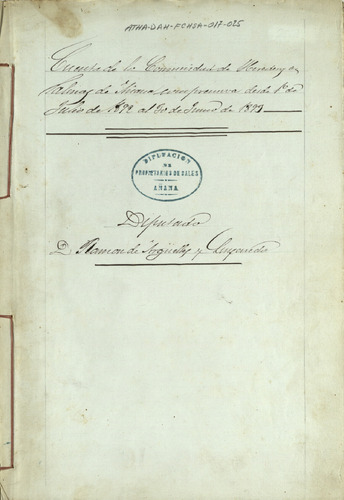 ATHA-DAH-FCHSA-017-025
Cuenta de la Comunidad de Herederos
Salinas de Añana comprensiva desde 1º de
Julio de 1892 al 30 de Junio de 1893
DIPUTACION
DE
PROPIETARIOS DE SALES
AÑANA
Diputado
D. Ramon de Angulo y